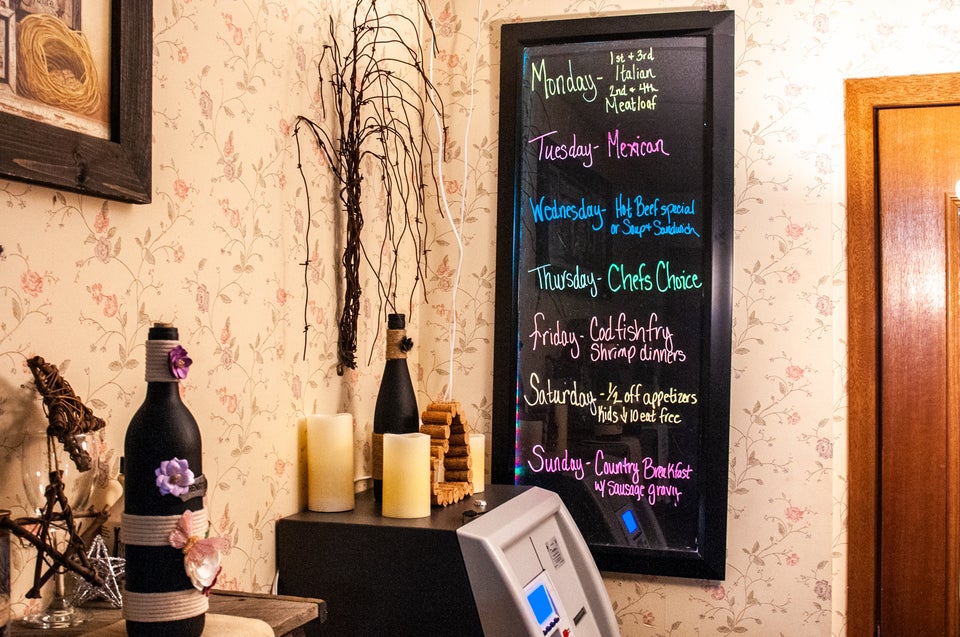 Monday - 1st & 3rd
Italian
2nd & 4th
Meatloaf
Tuesday - Mexican
Wednesday - Hot Beef special
or Soup & Sandwich
Thursday - Chefs Choice
Friday - Cod fish fry
Shrimp dinners
Saturday - 1/2 off appetizers
Kids ↓ 10 eat free
Sunday - Country Breakfast
w/ Sausage gravy